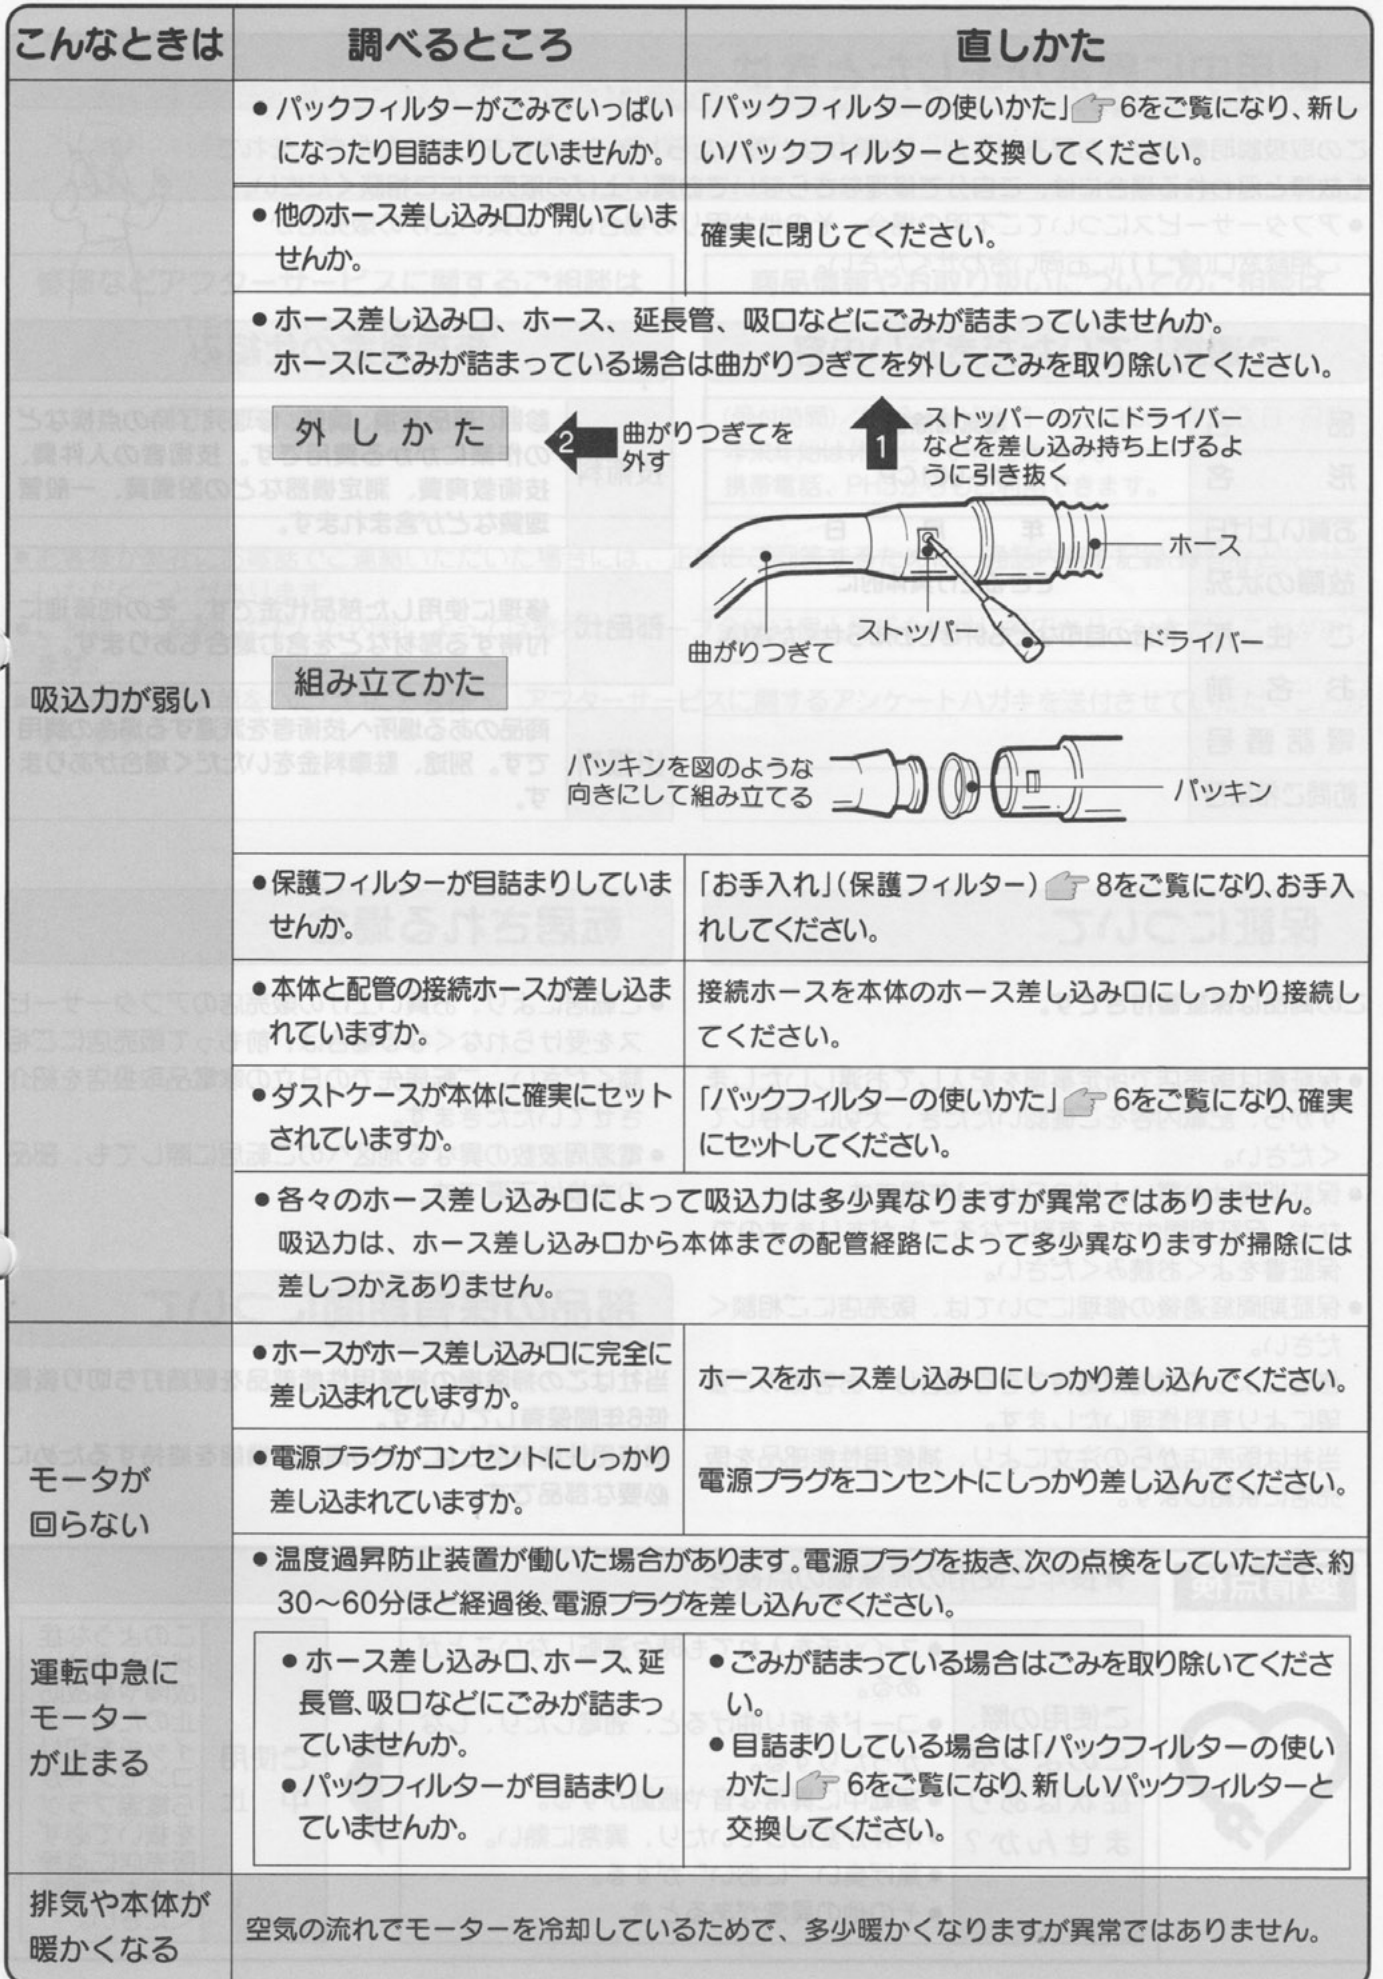 こんなときは
調べるところ
直しかた
吸込力が弱い
●パックフィルターがごみでいっぱい
になったり目詰まりしていませんか。
「パックフィルターの使いかた」☞6をご覧になり、新し
いパックフィルターと交換してください。
●他のホース差し込み口が開いていま
せんか。
確実に閉じてください。
●ホース差し込み口、ホース、延長管、吸口などにごみが詰まっていませんか。
ホースにごみが詰まっている場合は曲がりつぎてを外してごみを取り除いてください。
外しかた
2
曲がりつぎてを
外す
1
ストッパーの穴にドライバー
などを差し込み持ち上げるよ
うに引き抜く
ホース
ストッパー
ドライバー
曲がりつぎて
組み立てかた
パッキンを図のような
向きにして組み立てる
パッキン
●保護フィルターが目詰まりしていま
せんか。
「お手入れ」(保護フィルター)☞8をご覧になり、お手入
れしてください。
●本体と配管の接続ホースが差し込ま
れていますか。
接続ホースを本体のホース差し込み口にしっかり接続し
てください。
●ダストケースが本体に確実にセット
されていますか。
「パックフィルターの使いかた」☞6をご覧になり、確実
にセットしてください。
●各々のホース差し込み口によって吸込力は多少異なりますが異常ではありません。
吸込力は、ホース差し込み口から本体までの配管経路によって多少異なりますが掃除には
差しつかえありません。
モータが
回らない
●ホースがホース差し込み口に完全に
差し込まれていますか。
ホースをホース差し込み口にしっかり差し込んでください。
●電源プラグがコンセントにしっかり
差し込まれていますか。
電源プラグをコンセントにしっかり差し込んでください。
運転中急に
モーター
が止まる
●温度過昇防止装置が働いた場合があります。電源プラグを抜き、次の点検をしていただき、約
30～60分ほど経過後、電源プラグを差し込んでください。
●ホース差し込み口、ホース、延
長管、吸口などにごみが詰まっ
ていませんか。
●パックフィルターが目詰まりし
ていませんか。
●ごみが詰まっている場合はごみを取り除いてくださ
い。
●目詰まりしている場合は「パックフィルターの使い
かた」☞6をご覧になり、新しいパックフィルターと
交換してください。
排気や本体が
暖かくなる
空気の流れでモーターを冷却しているためで、多少暖かくなりますが異常ではありません。